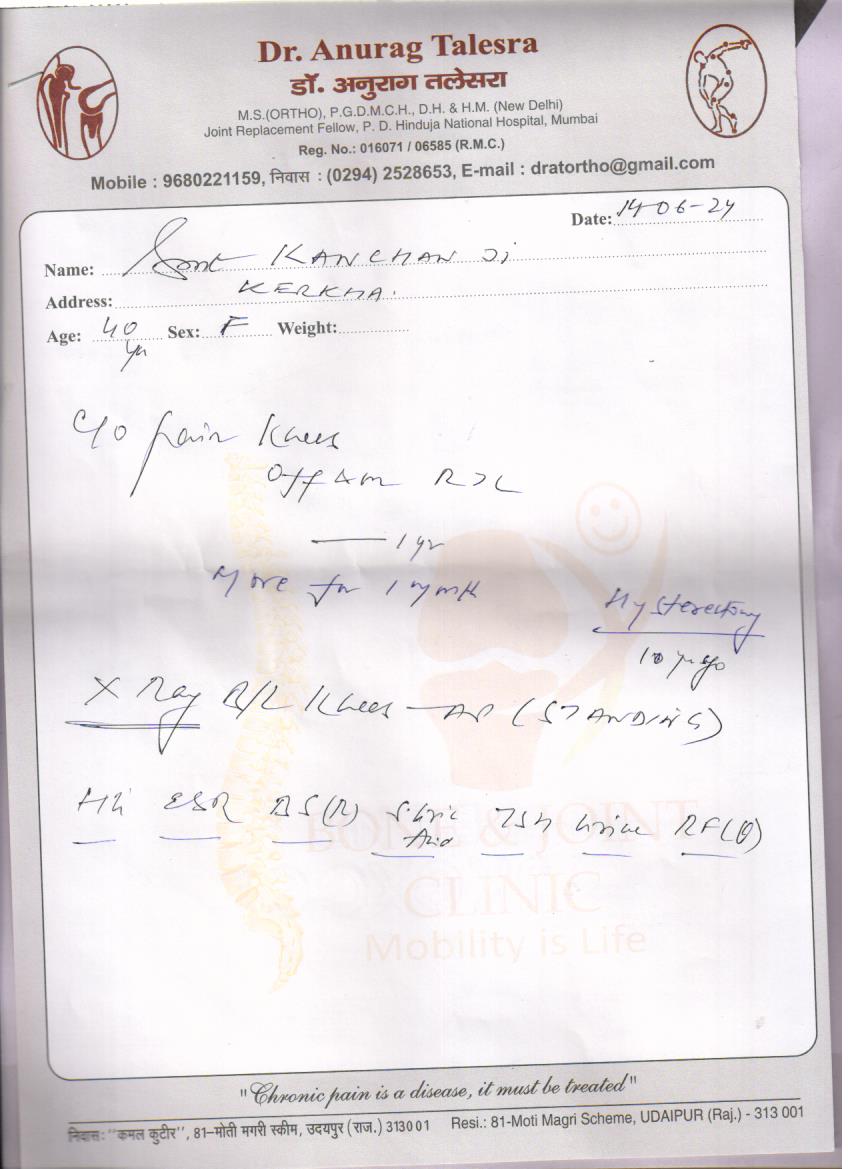 Dr. Anurag Talesra
डॉ. अनुराग तलेसरा
M.S.(ORTHO), P.G.D.M.C.H., D.H. & H.M. (New Delhi)
Joint Replacement Fellow, P. D. Hinduja National Hospital, Mumbai
Reg. No.: 016071 / 06585 (R.M.C.)
Mobile : 9680221159, निवास : (0294) 2528653, E-mail : dratortho@gmail.com
Date: 14-06-24
Name: Smt KANCHAN Ji
Address: KERKHA.
Age: 40 yr Sex: F Weight:
C/o pain Knees
Off & on R>L
— 1 yr
More for 1 month
Hysterectomy
10 yr ago
X Ray B/L Knees — AP (STANDING)
Hb ESR BS(R) S. Uric Acid TSH Urine RF(Q)
BONE & JOINT
CLINIC
Mobility is Life
"Chronic pain is a disease, it must be treated"
निवास: "कमल कुटीर", 81–मोती मगरी स्कीम, उदयपुर (राज.) 313001 Resi.: 81-Moti Magri Scheme, UDAIPUR (Raj.) - 313 001